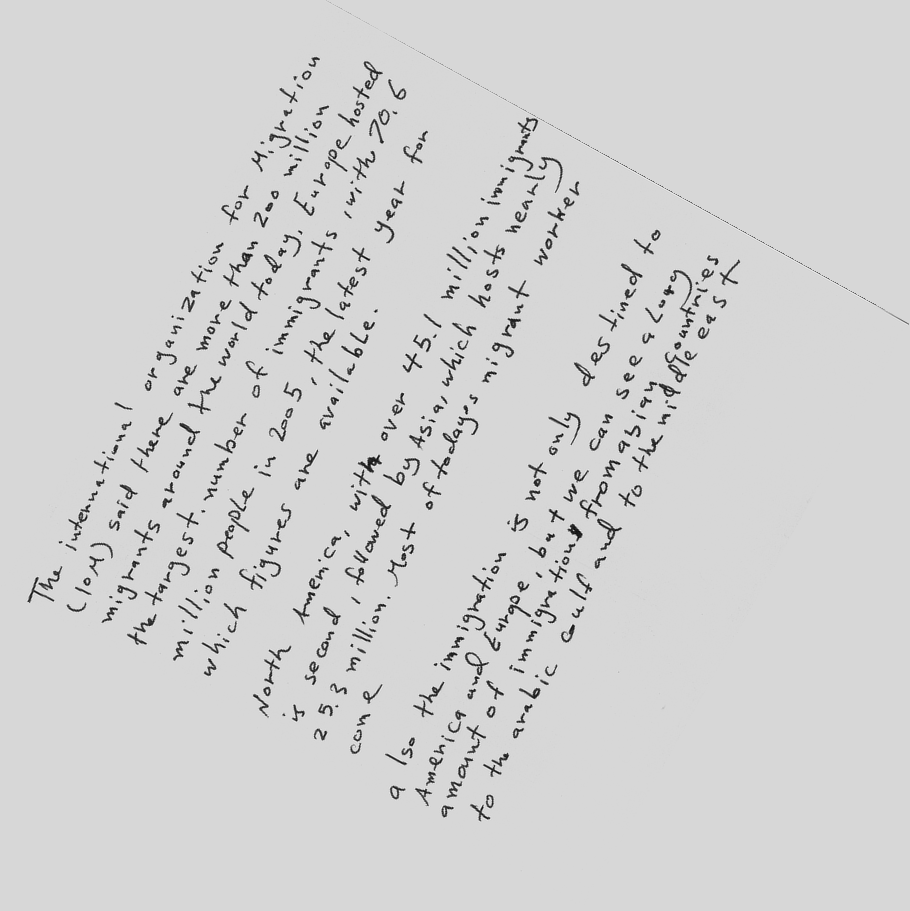 The international organization for Migration
(IOM) said there are more than 200 million
migrants around the world today. Europe hosted
the targest. number of immigrants, with 70.6
million people in 2005, the latest year for
which figures are available.
North America, with over 45.1 million immigrants
is second, followed by Asia, which hosts nearly
25.3 million. Most of todayes migrant worker
come
also the immigration is not only destined to
America and Europe, but we can see a Larg
amount of immigrations from abian Countries
to the arabic Gulf and to the middle east